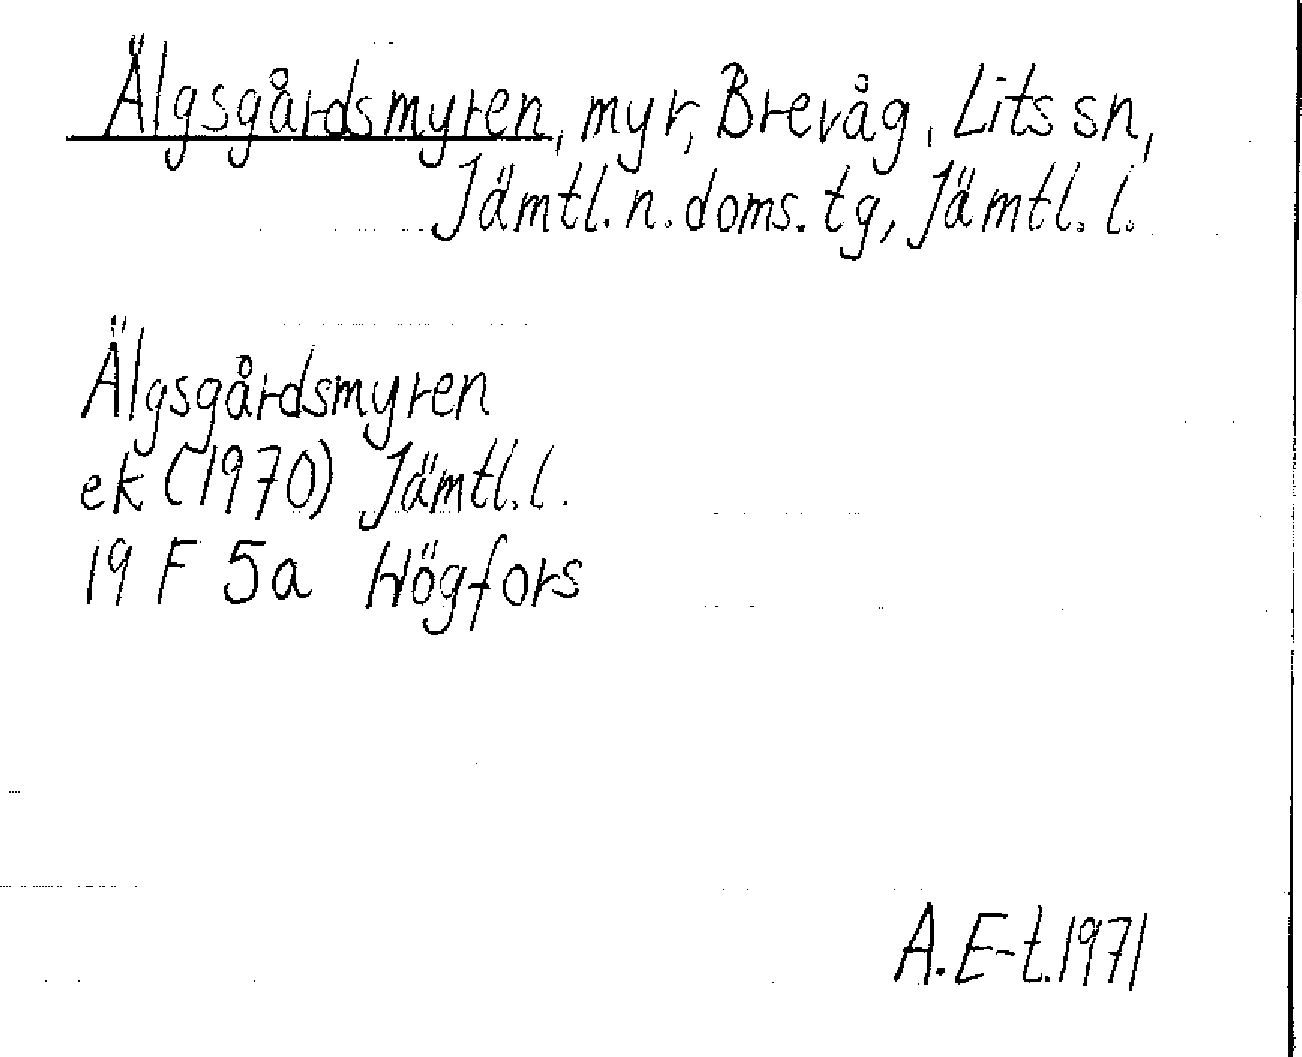 Älgsgårdsmyren, myr, Brevåg, Lits sn,
Jämtl. n. doms. tg, Jämtl. l.
Älgsgårdsmyren
ek (1970) Jämtl. l.
19 F 5a Högfors
A. E-t. 1971